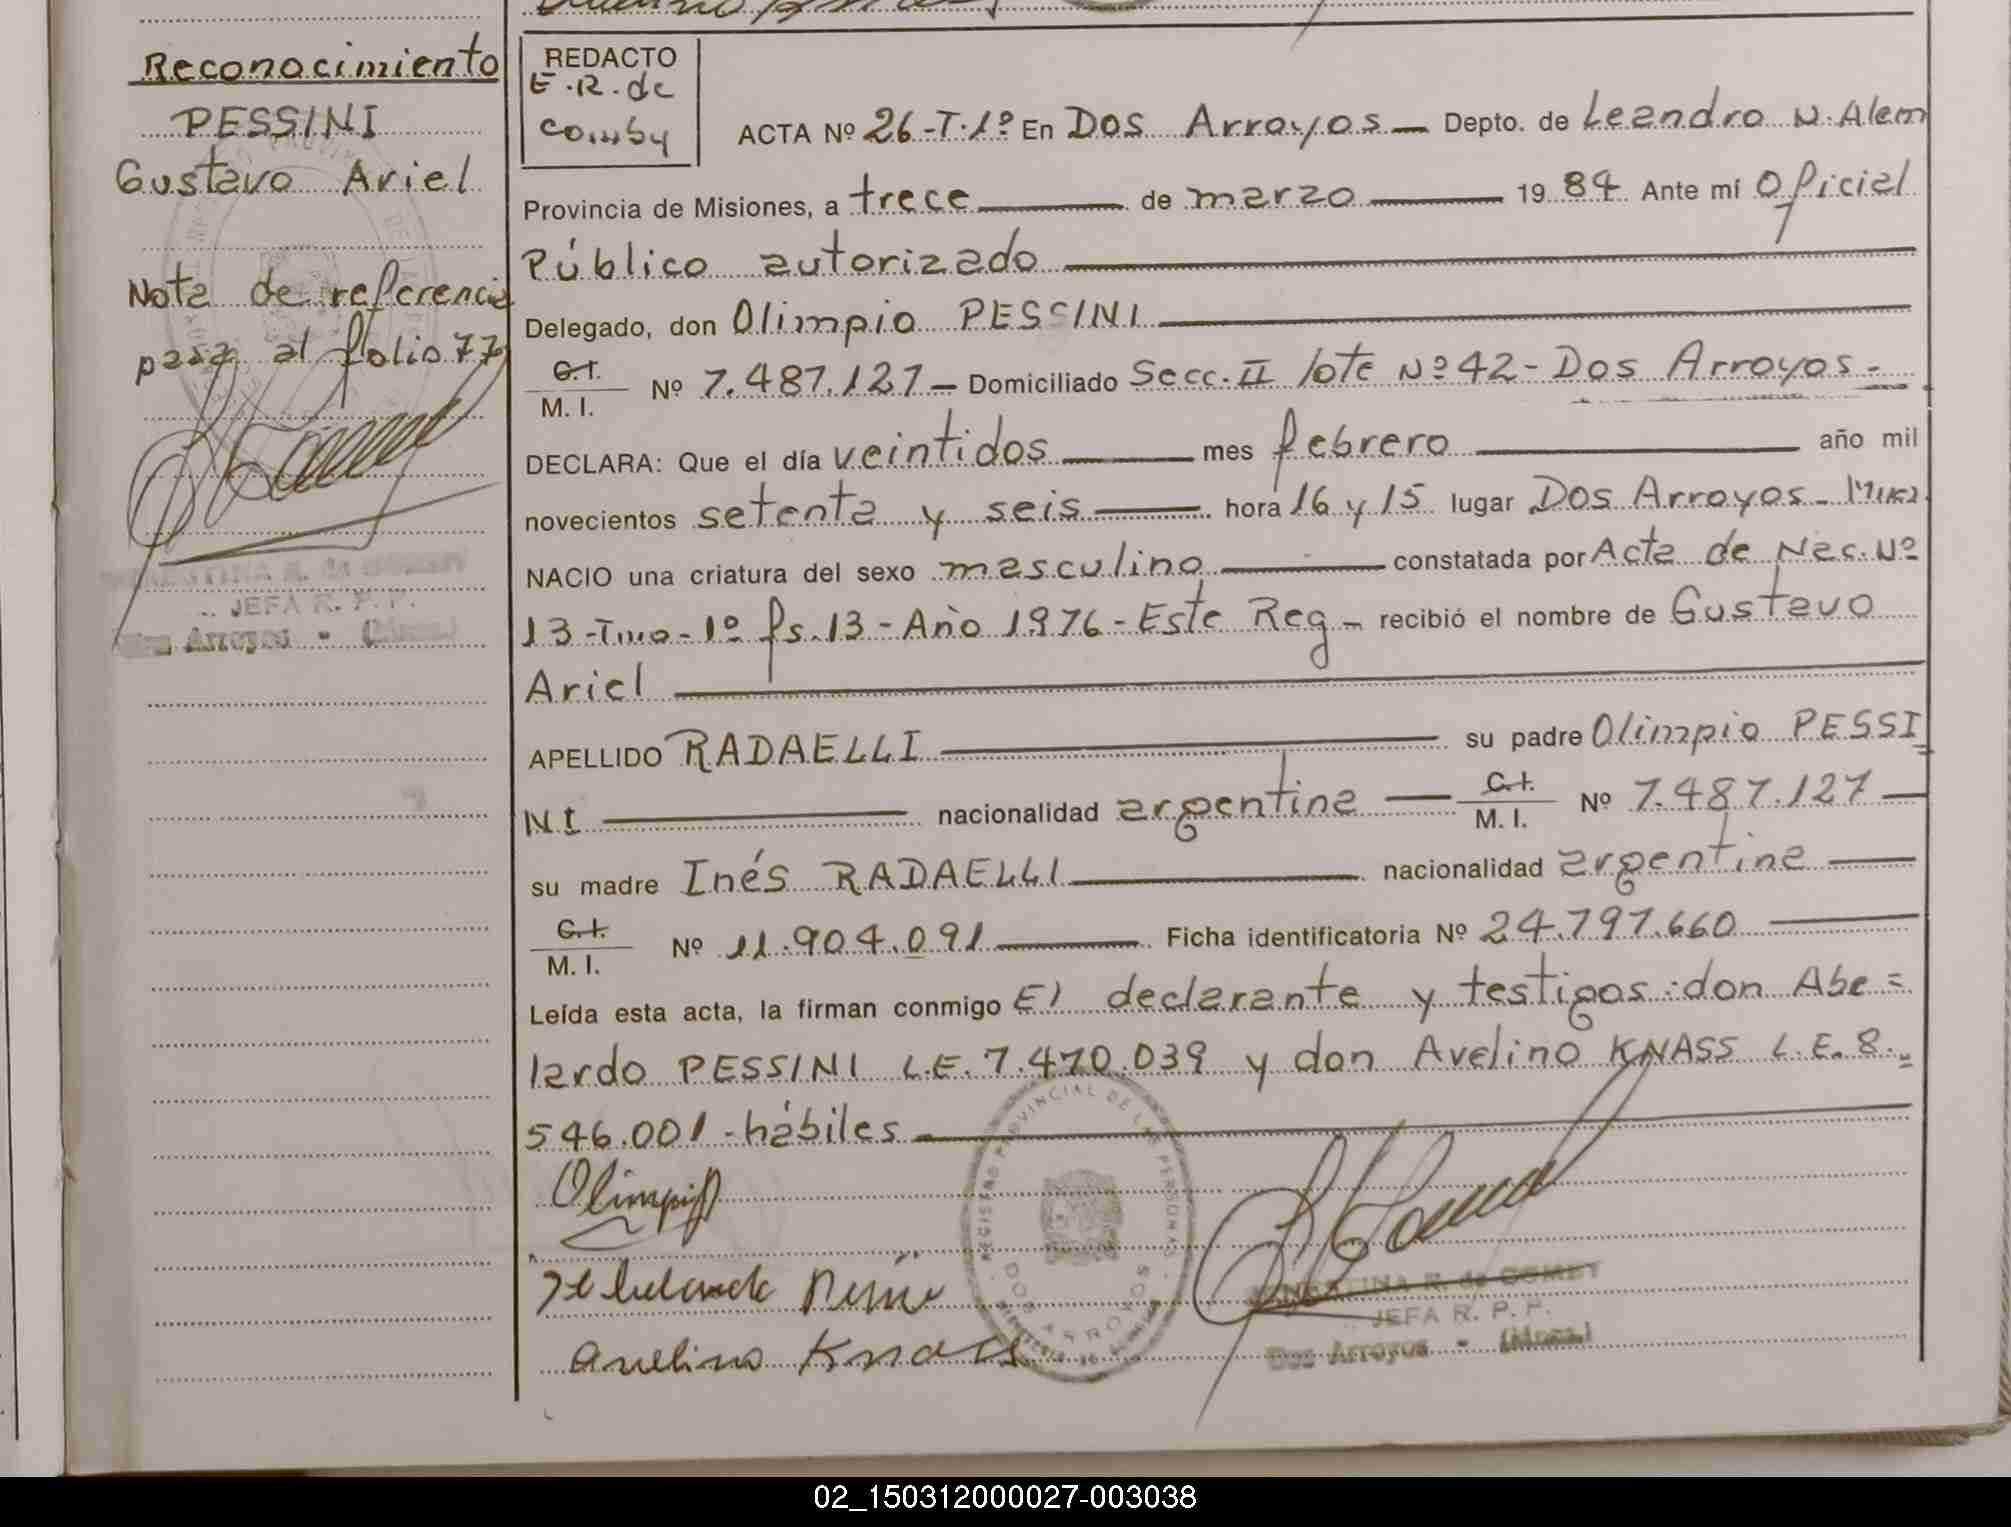 Reconocimiento
PESSINI
Gustavo Ariel
Nota de referencia
pasa al folio 77
JEFA R. P. P.
Dos Arroyos - (Mnes.)
REDACTO
E.R. de
Comby
ACTA Nº 26-T.1º En Dos Arroyos — Depto. de Leandro N. Alem
Provincia de Misiones, a trece de marzo 19 84 Ante mí Oficial
Público autorizado
Delegado, don Olimpio PESSINI
C.I.
M. I. Nº 7.487.127 — Domiciliado Secc. II lote Nº 42 - Dos Arroyos -
DECLARA: Que el día veintidos mes febrero año mil
novecientos setenta y seis hora 16 y 15 lugar Dos Arroyos - Mnes
NACIO una criatura del sexo masculino constatada por Acta de Nac. Nº
13-Tmo-1º fs. 13 - Año 1976 - Este Reg — recibió el nombre de Gustavo
Ariel
APELLIDO RADAELLI su padre Olimpio PESSI
NI nacionalidad argentina C.I.
M. I. Nº 7.487.127
su madre Inés RADAELLI nacionalidad argentina
C.I.
M. I. Nº 11.904.091 Ficha identificatoria Nº 24.797.660
Leída esta acta, la firman conmigo El declarante y testigos: don Abe =
lardo PESSINI L.E. 7.470.039 y don Avelino KNASS L.E. 8.
546.001 - hábiles
Olimpio
Avelino Knass
REGISTRO PROVINCIAL DE LAS PERSONAS
DOS ARROYOS
ERNESTINA R. de COMBY
JEFA R. P. P.
Dos Arroyos - (Mnes.)
02_150312000027-003038